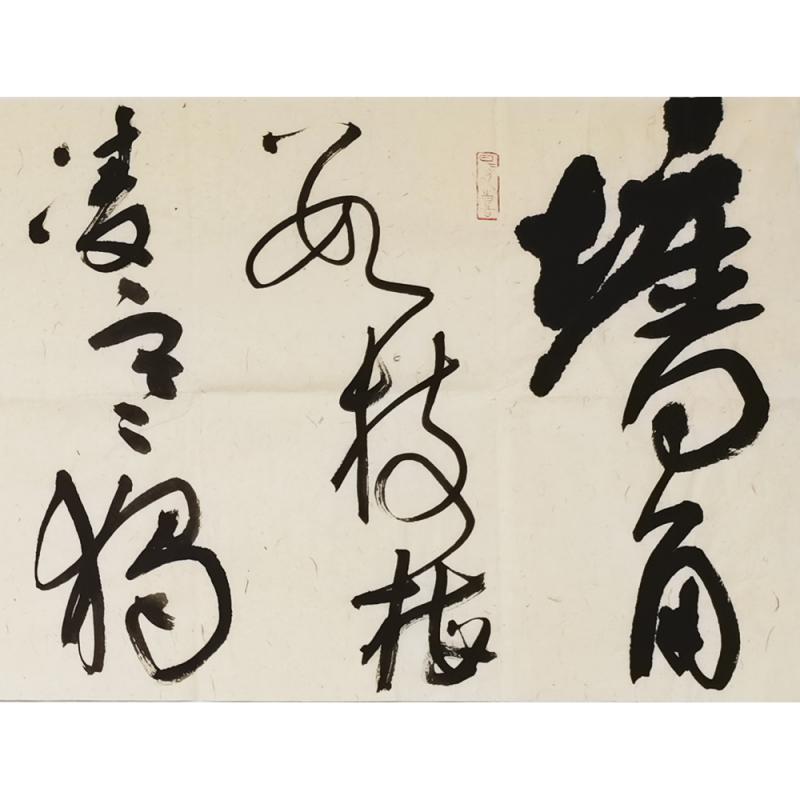 墙角
数枝梅
凌寒独